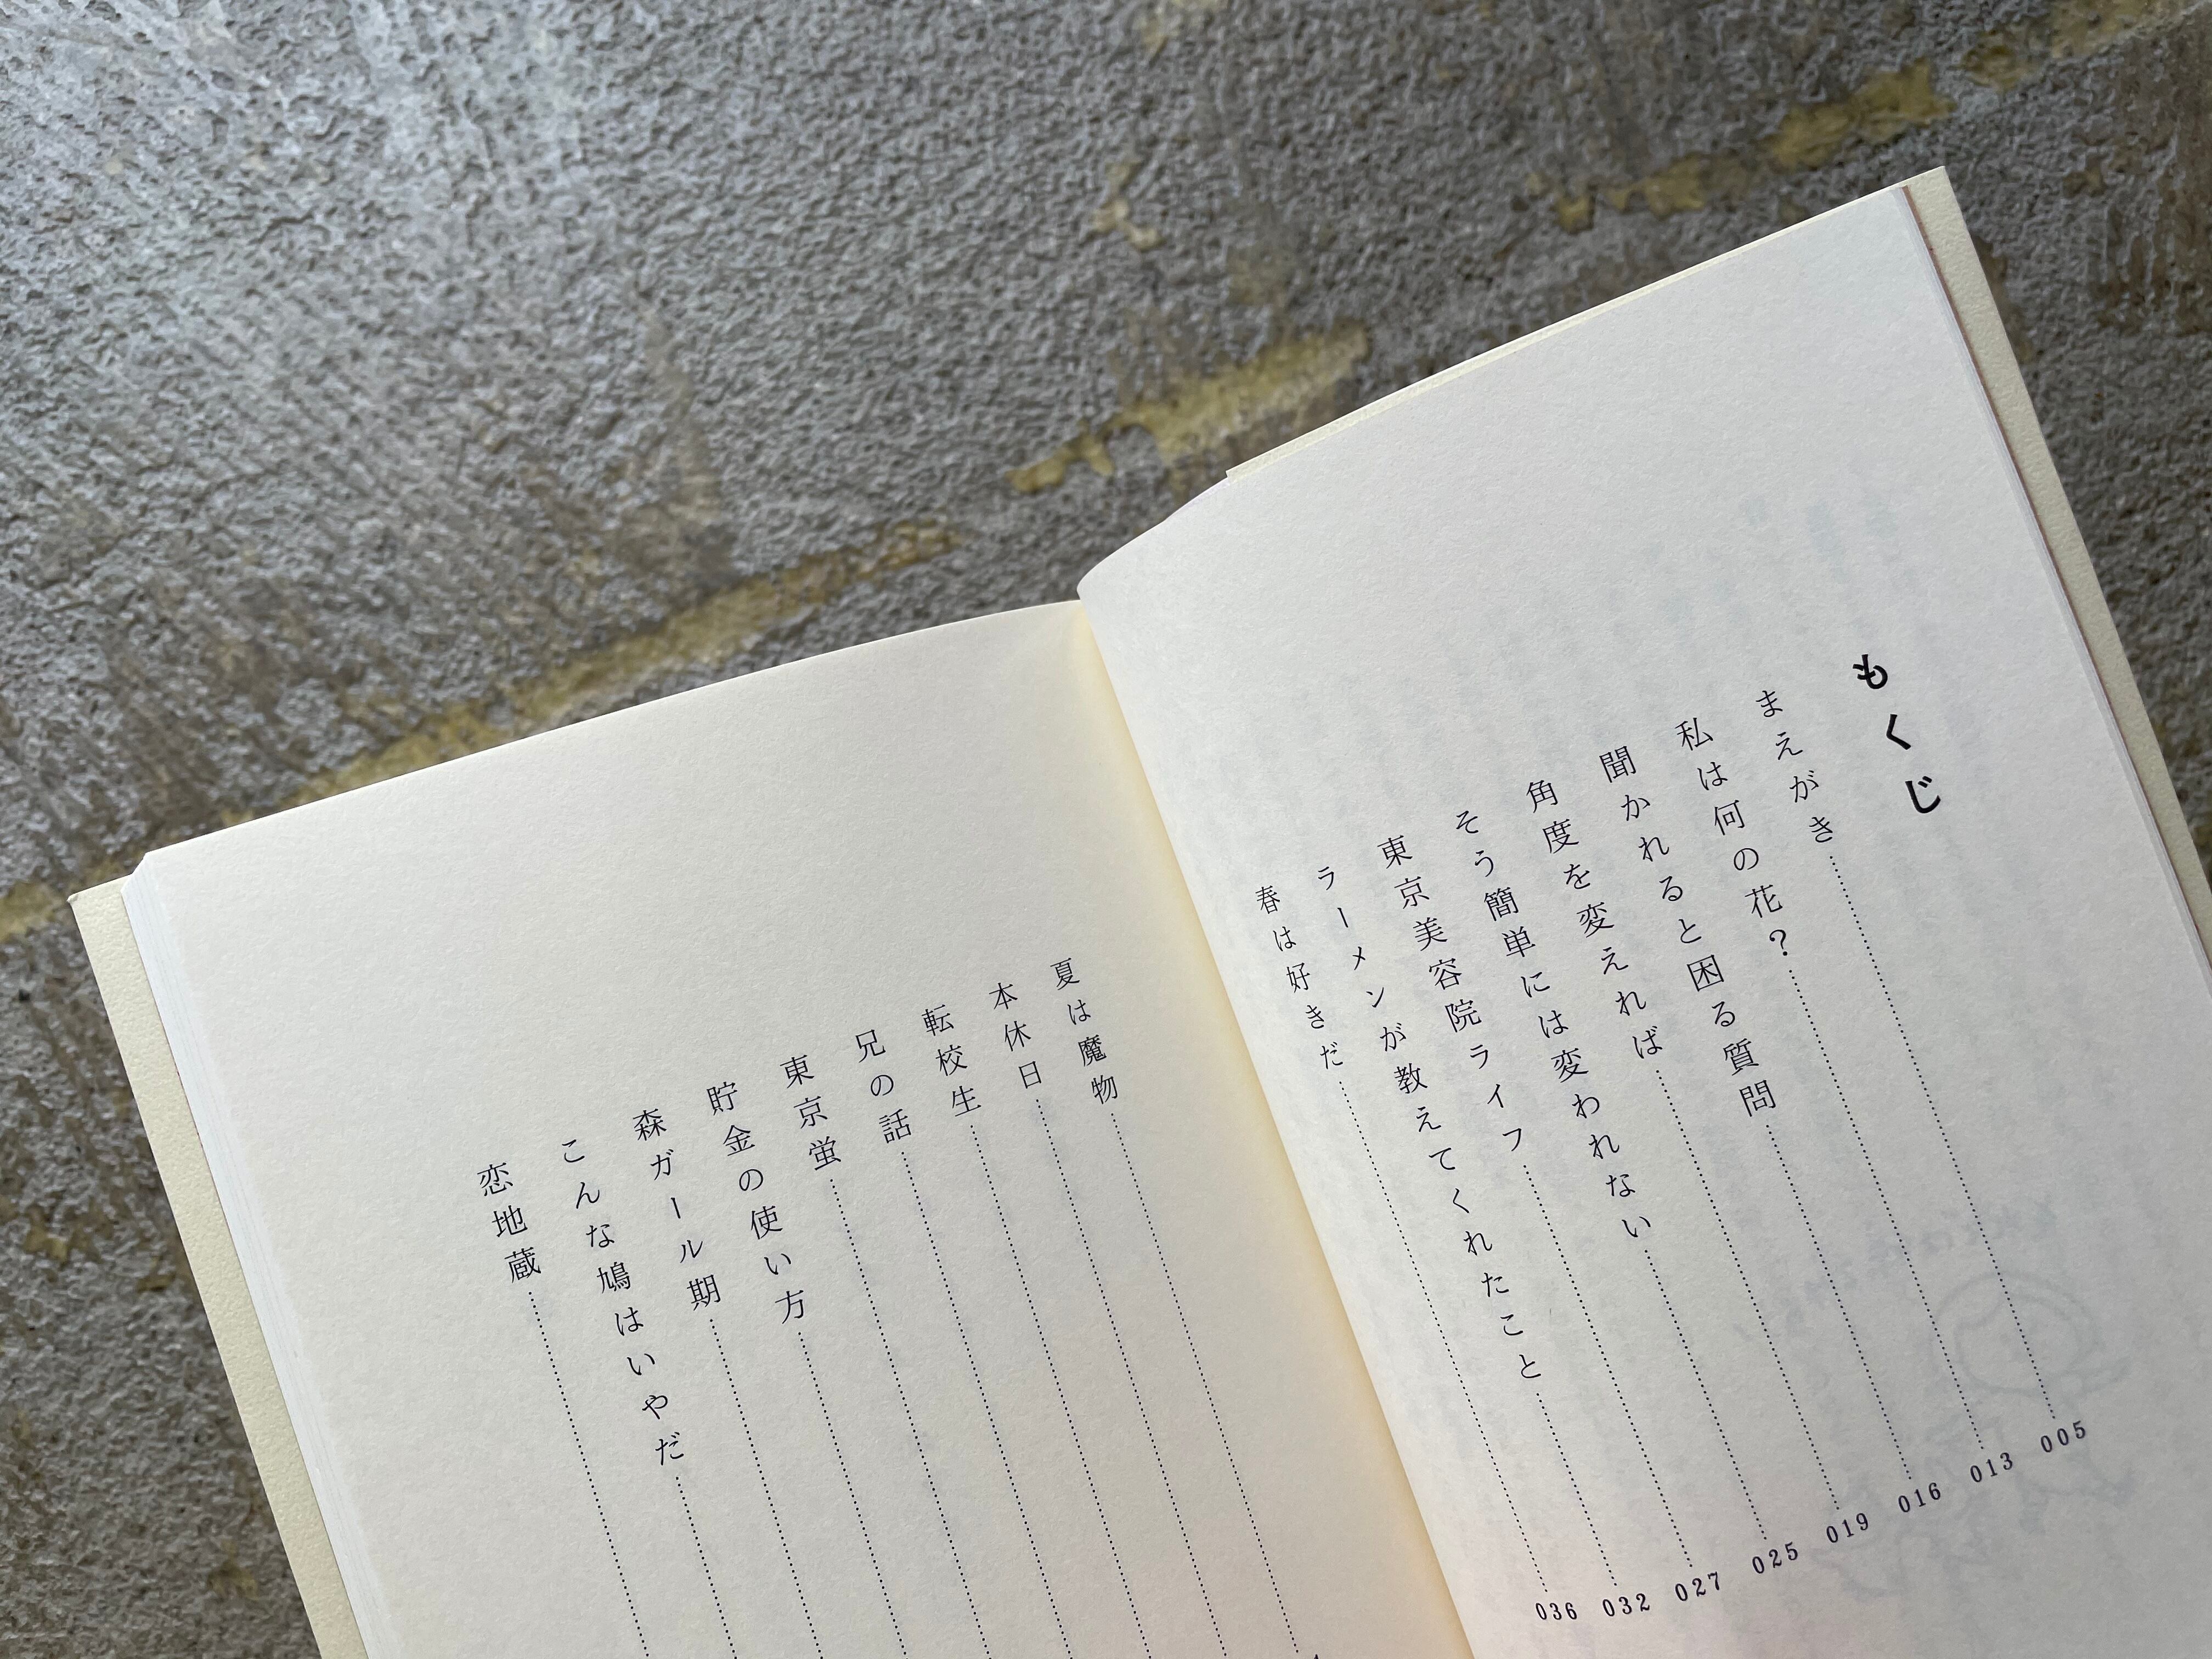 もくじ
まえがき…………005
私は何の花？…………013
聞かれると困る質問…………016
角度を変えれば…………019
そう簡単には変われない…………025
東京美容院ライフ…………027
ラーメンが教えてくれたこと…………032
春は好きだ…………036
夏は魔物…………
本休日…………
転校生…………
兄の話…………
東京蛍…………
貯金の使い方…………
森ガール期…………
こんな鳩はいやだ…………
恋地蔵…………